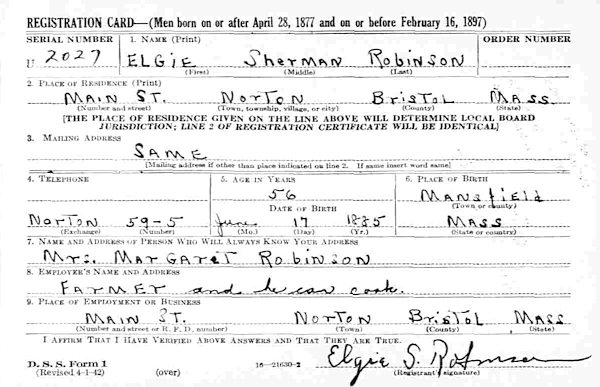 REGISTRATION CARD—(Men born on or after April 28, 1877 and on or before February 16, 1897)
SERIAL NUMBER 1. NAME (Print) ORDER NUMBER
U 2027 ELGIE Sherman Robinson
(First) (Middle) (Last)
2. PLACE OF RESIDENCE (Print)
MAIN ST. NORTON BRISTOL MASS
(Number and street) (Town, township, village, or city) (County) (State)
[THE PLACE OF RESIDENCE GIVEN ON THE LINE ABOVE WILL DETERMINE LOCAL BOARD
JURISDICTION; LINE 2 OF REGISTRATION CERTIFICATE WILL BE IDENTICAL]
3. MAILING ADDRESS
SAME
[Mailing address if other than place indicated on line 2. If same insert word same]
4. TELEPHONE 5. AGE IN YEARS 6. PLACE OF BIRTH
56 MANSfiELd
DATE OF BIRTH (Town or county)
NORTON 59-5 June 17 1885 MASS
(Exchange) (Number) (Mo.) (Day) (Yr.) (State or country)
7. NAME AND ADDRESS OF PERSON WHO WILL ALWAYS KNOW YOUR ADDRESS
Mrs. MARGARET ROBINSON
8. EMPLOYER'S NAME AND ADDRESS
FARMER and he can cook.
9. PLACE OF EMPLOYMENT OR BUSINESS
MAIN ST. NORTON BRISTOL MASS
(Number and street or R. F. D. number) (Town) (County) (State)
I AFFIRM THAT I HAVE VERIFIED ABOVE ANSWERS AND THAT THEY ARE TRUE.
D. S. S. Form 1 16—21630-2 Elgie S. Robinson
(Revised 4-1-42) (over) (Registrant's signature)